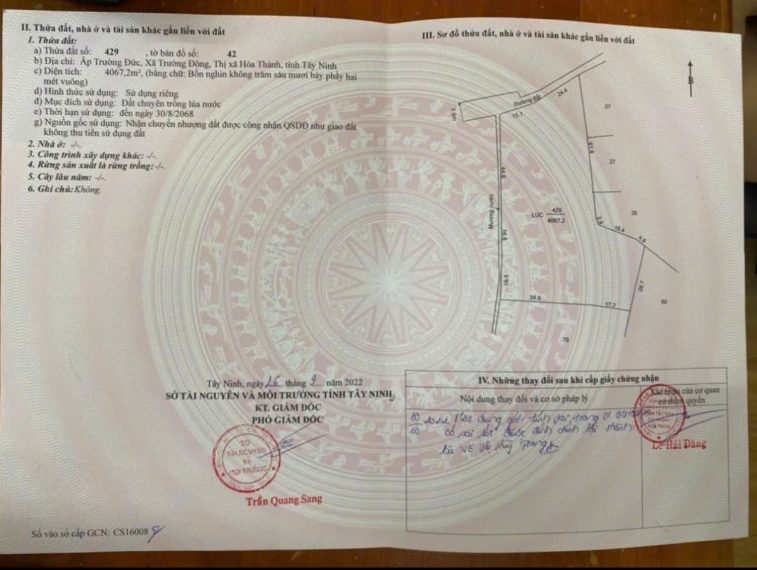 II. Thửa đất, nhà ở và tài sản khác gắn liền với đất
1. Thửa đất:
a) Thửa đất số: 429 , tờ bản đồ số: 42
b) Địa chỉ: Ấp Trường Đức, Xã Trường Đông, Thị xã Hòa Thành, tỉnh Tây Ninh
c) Diện tích: 4067,2m², (bằng chữ: Bốn nghìn không trăm sáu mươi bảy phẩy hai
mét vuông)
d) Hình thức sử dụng: Sử dụng riêng
đ) Mục đích sử dụng: Đất chuyên trồng lúa nước
e) Thời hạn sử dụng: đến ngày 30/8/2068
g) Nguồn gốc sử dụng: Nhận chuyển nhượng đất được công nhận QSDĐ như giao đất
không thu tiền sử dụng đất
2. Nhà ở: -/-
3. Công trình xây dựng khác: -/-
4. Rừng sản xuất là rừng trồng: -/-
5. Cây lâu năm: -/-
6. Ghi chú: Không.
Tây Ninh, ngày 26 tháng 9 năm 2022
SỞ TÀI NGUYÊN VÀ MÔI TRƯỜNG TỈNH TÂY NINH
KT. GIÁM ĐỐC
PHÓ GIÁM ĐỐC
SỞ
TÀI NGUYÊN
VÀ
MÔI TRƯỜNG
Trần Quang Sang
Số vào sổ cấp GCN: CS16008
III. Sơ đồ thửa đất, nhà ở và tài sản khác gắn liền với đất
B
Đường đất
24.4
15.1
07
61.9
27
Mương nước
LUC 429
4067.2
35
18.4
4.6
39.8
17.3
79
IV. Những thay đổi sau khi cấp giấy chứng nhận
Nội dung thay đổi và cơ sở pháp lý
Xác nhận của cơ quan
có thẩm quyền
Lê Hải Đăng